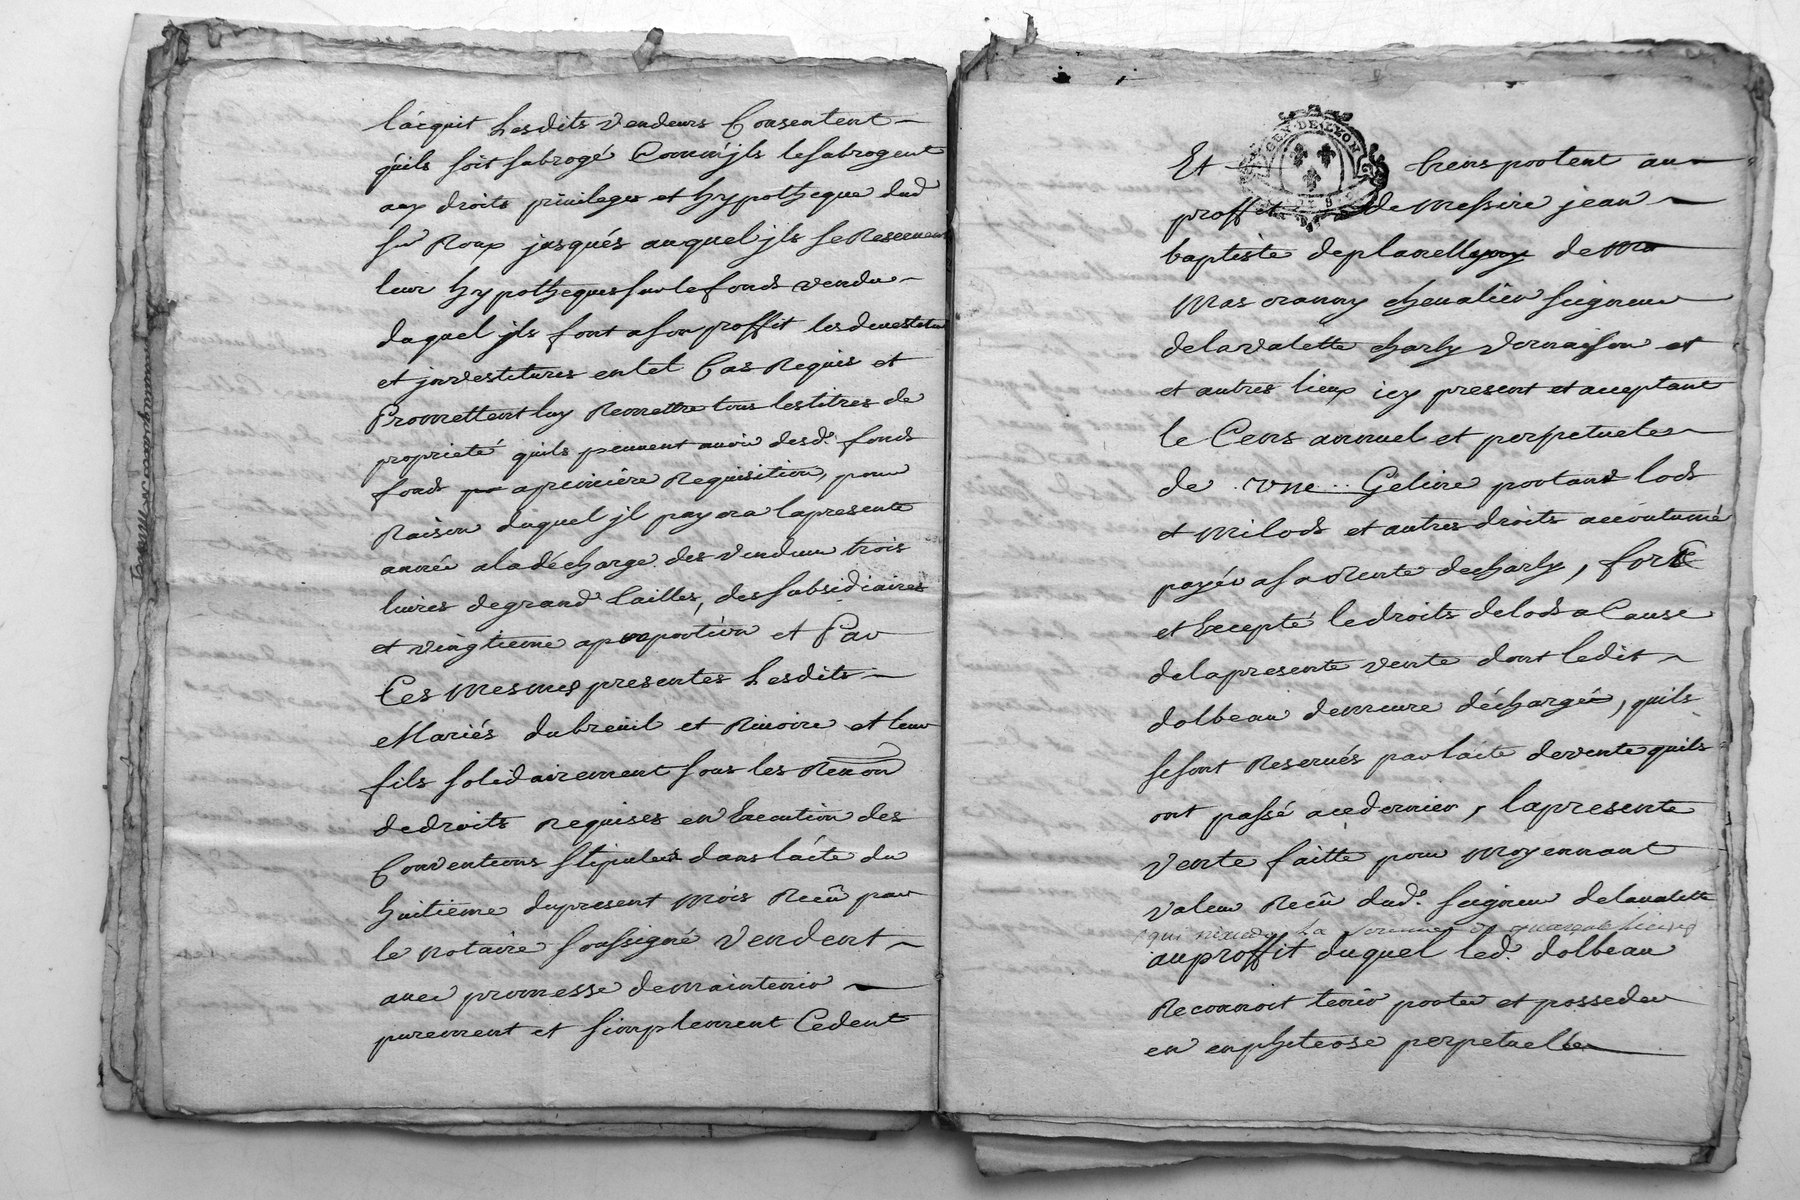 lacquit Lesdits vendeurs Consentent
quils soit subrogé Comm'jls lesubrogent
aux droits privileges et hypotheque dud
Sr Roux jusqués auquel jls se Reservent
leur hypotheques sur le fonds vendu
duquel jls font a son proffit les devestitu
et jnvestitures en tel Cas Requis et
Promettent luy Remettre tous les titres de
proprieté quils peuvent avoir desd. fonds
fonds apremiere Requisition, pour
Raison duquel jl payera lapresente
année aladécharge des vendeurs trois
livres degrand tailles, des subsidiaires
et vingtieme aproportion et Par
Ces mesmes presentes Lesdits
Mariés dubreüil et Rivoire et leur
fils solidairement sous les Renon
dedroits Requises en Execution des
Conventions stipulées dans lacte du
huitieme dupresent mois Recû par
le notaire soussigné vendent
avec promesse demaintenir
purement et simplement Cedent
GEN. DE LYON
Et biens portent au
proffit de Messire jean
baptiste deplanelly de
Mascranny chevalier seigneur
delavalette charly vernaison et
et autres lieux icy present et acceptant
le Cens annuel et perpetuel
de une Geline portant lods
et milods et autres droits accoutumé
payés a sa Rente decharly, fors
et Excepté le droits delods a Cause
delapresente vente dont ledit
dolbeau demeure déchargé, quils
se sont Reservés par lacte devente quils
ont passé acedernier, lapresente
vente faitte pour moyennant
valeur Recû dud. seigneur delavalette
auproffit duquel led. dolbeau
Reconnoit tenir porter et posseder
en enphiteose perpetuelle